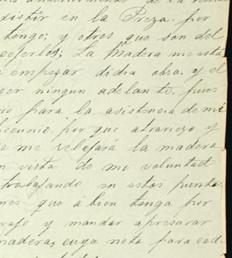 existir en la Presa. por
tengo; y otros que son del
; La Madera me está
á empezar dicha obra, y el
cer ningun adelanto, pues
rio para la asistencia de mi
pecunio, por que atraviezo y
e me rebajará la madera
en vista de me voluntad
trabajando en estas puentes
nos que a bien tenga por
y mandar apresurar
madera, cuya nota para